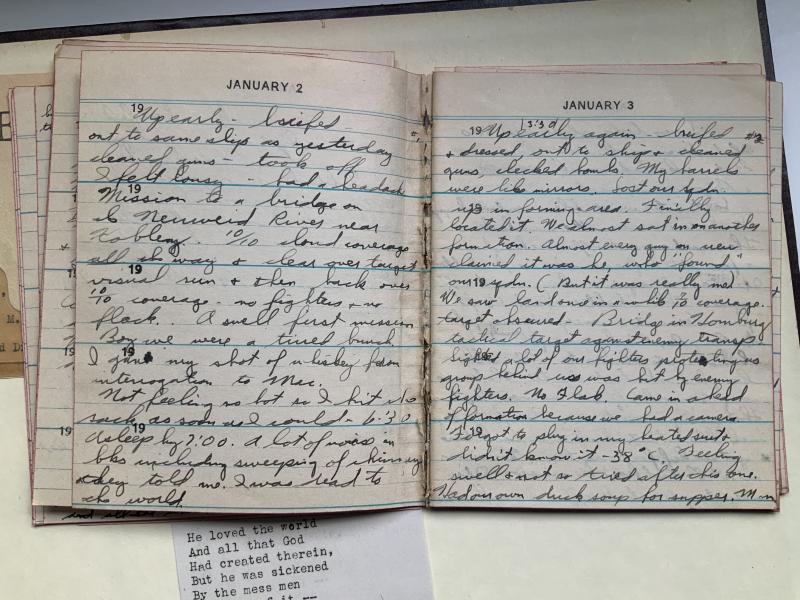 JANUARY 2
19
Up early - briefed -
out to same ship as yesterday
cleaned guns - took off
I felt lousy - had a headache
19
Mission to a bridge on
the Neuweid River near
Koblenz. 10/10 cloud coverage
all the way & clear over target
19
visual run & then back over
10/10 coverage - no fighters & no
flack. A swell first mission
Boy we were a tired bunch
19
I gave my shot of whiskey from
interrogation to Mac.
Not feeling so hot so I hit the
sack as soon as I could - 6:30
19
19
Asleep by 7:00. A lot of noise in
bks including sweeping of chimney
they told me. I was dead to
the world.
JANUARY 3
19
3:30
Up early again - briefed #2
& dressed, out to ship & cleaned
guns, checked bombs. My barrels
were like mirrors. Lost our sqdn.
19
up in forming area. Finally
located it. We almost sat in on another
formation. Almost every guy on crew
claimed it was he who "found"
19
our sqdn. (But it was really me)
We saw land once in a while 7/10 coverage.
target obscured - Bridge in Homburg
tactical target against enemy transp.
19
a lot of our fighters protecting us
group behind us was hit by enemy
fighters. No Flak. Came in ahead
of formation because we had a camera
19
Forgot to plug in my heated suit &
didn't know it -38°C Feeling
swell & not so tired after this one.
Had our own duck soup for supper.
He loved the world
And all that God
Had created therein,
But he was sickened
By the mess men